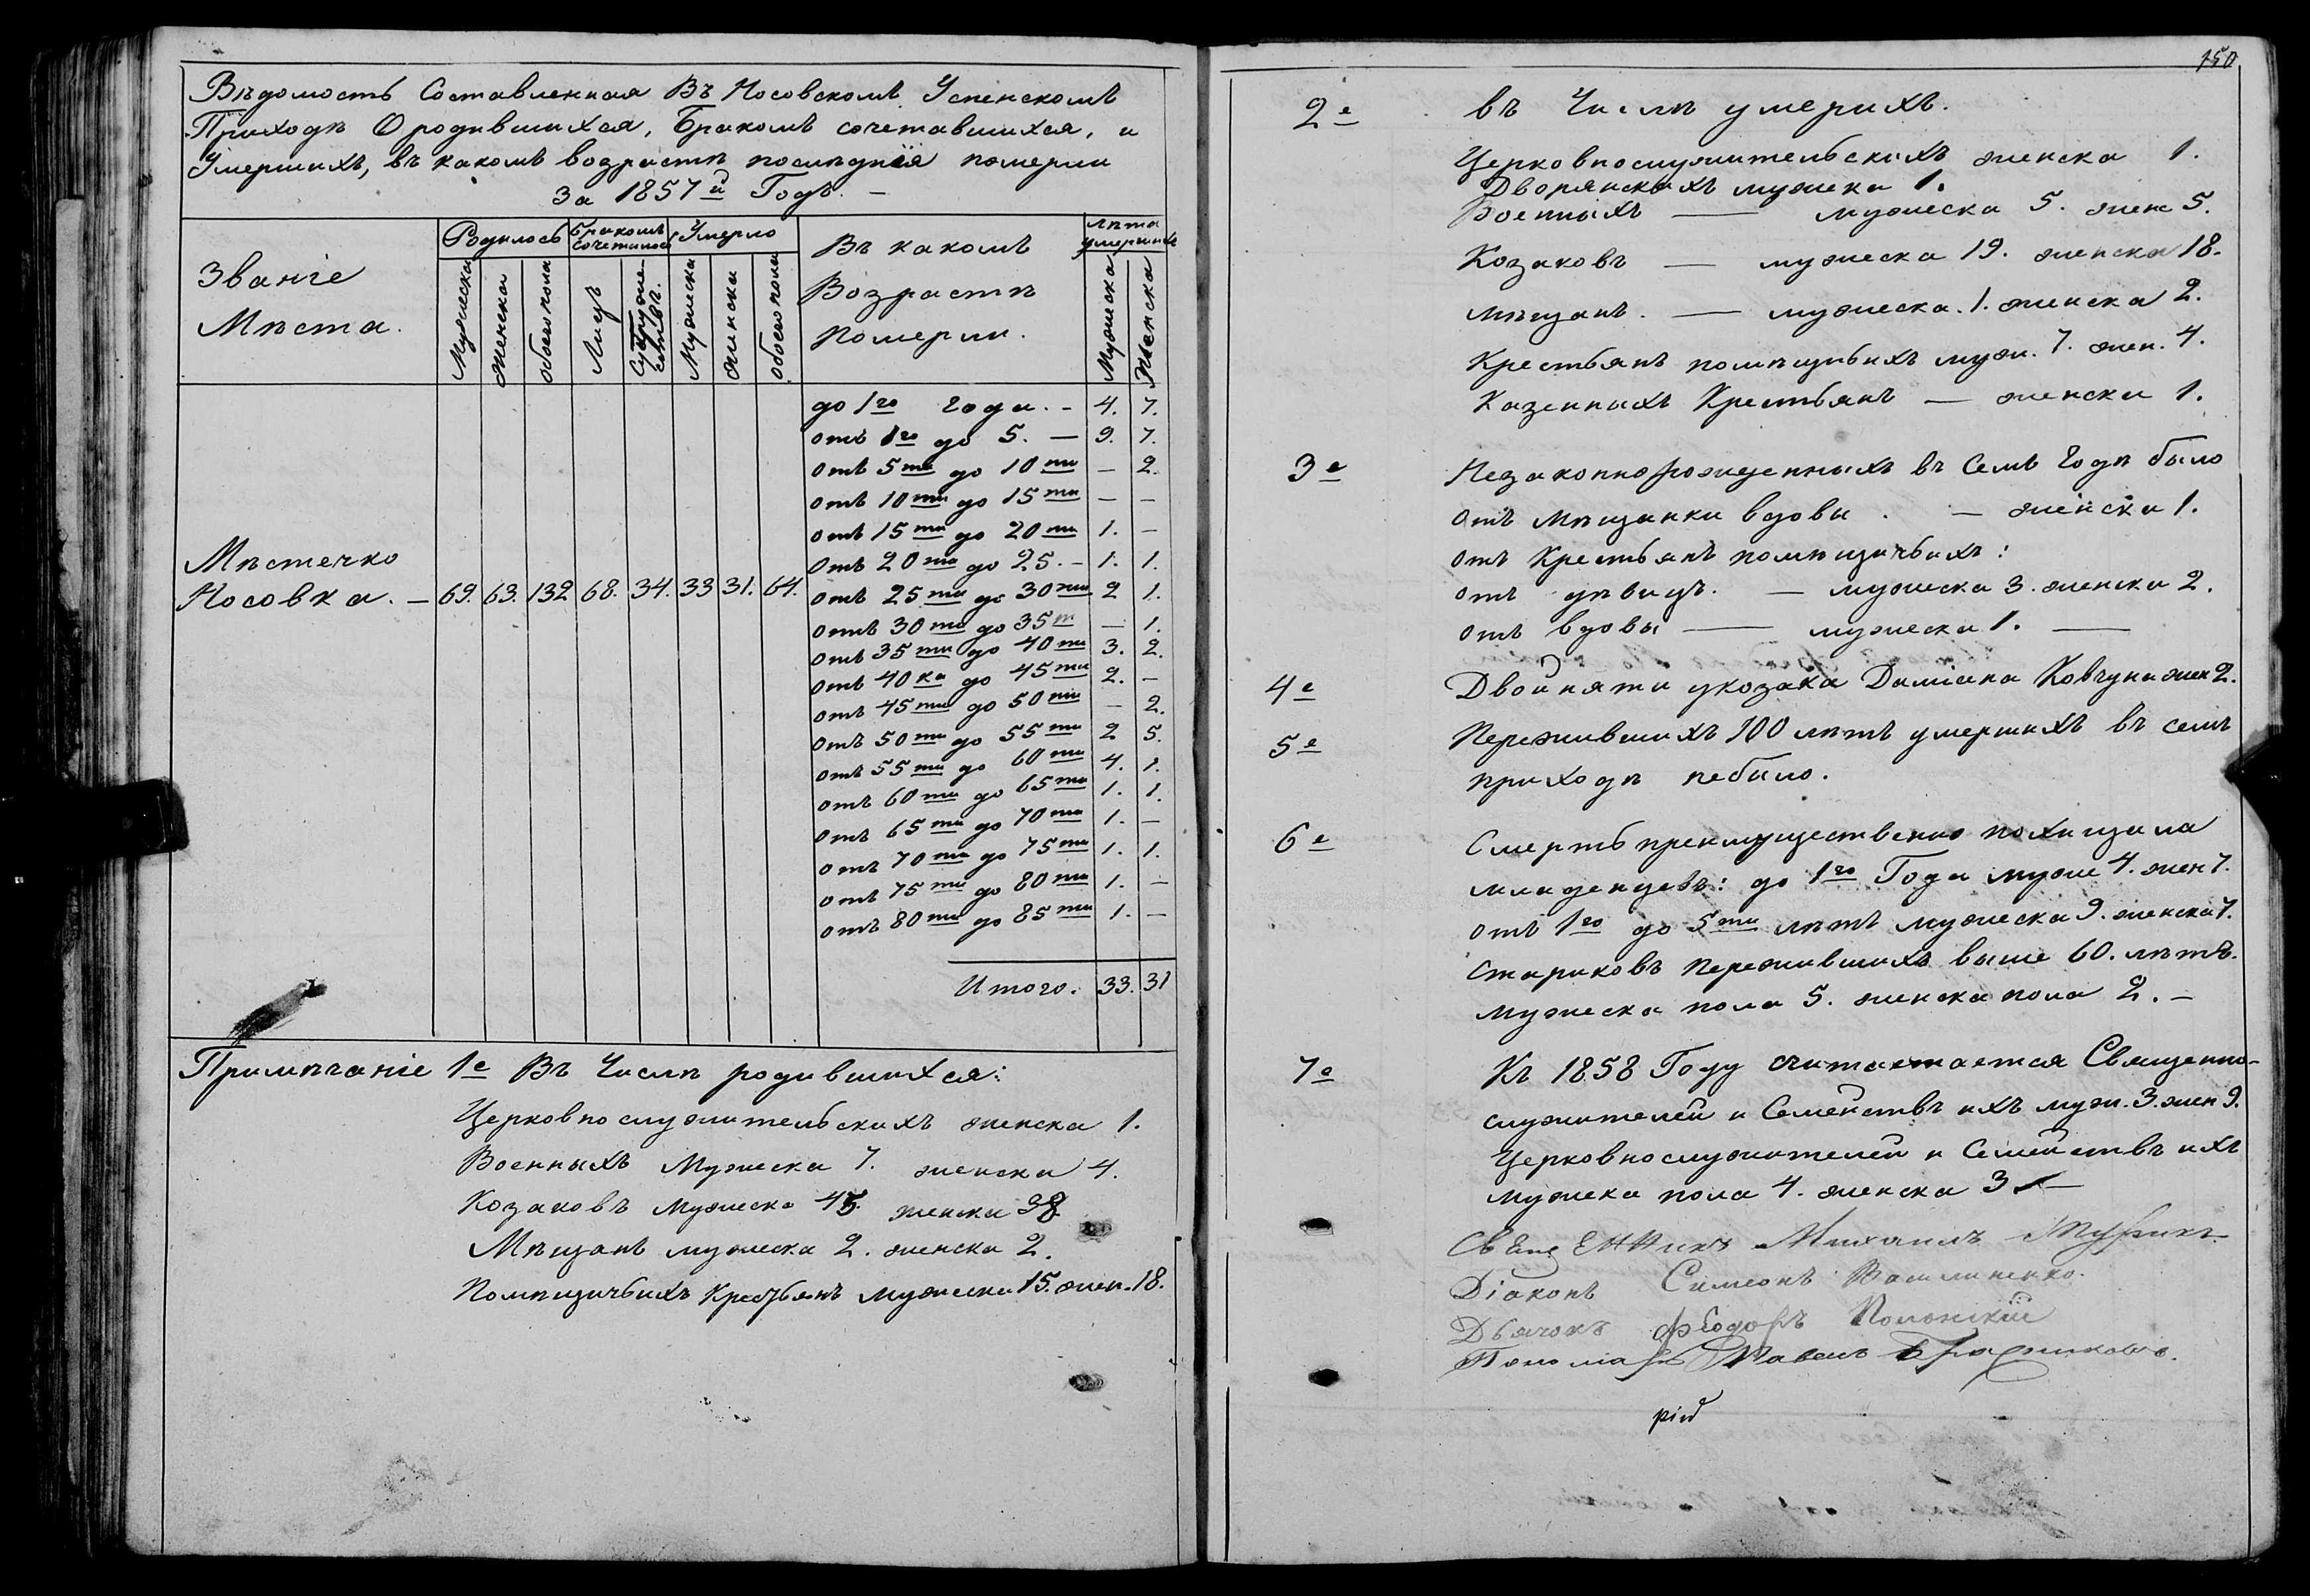 Вѣдомость Составленная Въ Носовскомъ Успенскомъ
Приходѣ О родившихся, Бракомъ сочетавшихся, и
Умершихъ, въ какомъ возрастѣ послѣднія померли
За 1857й Годъ. —
Званіе
Мѣста.
Родилось
Мужеска
Женска
обоего пола
Бракомъ
сочеталось
Лицъ
Супруже-
ствъ.
Умерло
Мужеска
женска
обоего пола
Въ какомъ
Возрастѣ
Померли.
лѣта
умершихъ
Мужеска
Женска
до 1го года. - 4. 7.
отъ 1го до 5. — 9. 7.
отъ 5ти до 10ти — 2.
отъ 10ти до 15ти — —
отъ 15ти до 20ти 1. —
отъ 20ти до 25. - 1. 1.
Мѣстечко
Носовка. — 69. 63. 132. 68. 34. 33 31. 64.
отъ 25ти до 30ти 2 1.
отъ 30ти до 35т — 1.
отъ 35ти до 40ти 3. 2.
отъ 40ка до 45ти 2. —
отъ 45ти до 50ти — 2.
отъ 50ти до 55ти 2 5.
отъ 55ти до 60ти 4. 1.
отъ 60ти до 65ти 1. 1.
отъ 65ти до 70ти 1. —
отъ 70ти до 75ти 1. 1.
отъ 75ти до 80ти 1. —
отъ 80ти до 85ти 1. —
Итого. 33. 31
Примѣчаніе 1е Въ Числѣ родившихся:
Церковнослужительскихъ женска 1.
Военныхъ Мужеска 7. женска 4.
Козаковъ мужеска 45. женска 38.
Мѣщанъ мужеска 2. женска 2.
Помѣщичьихъ Крестьянъ мужеска 15. жен. 18.
150
2е въ Числѣ умерихъ.
Церковнослужительскихъ женска 1.
Дворянскихъ мужска 1.
Военныхъ — мужеска 5. женс 5.
Козаковъ — мужеска 19. женска 18.
мѣщанъ. — мужеска. 1. женска 2.
Крестьянъ помѣщибихъ муж. 7. жен. 4.
Казенныхъ Крестьянъ — женска 1.
3е Незаконнорожденныхъ въ Семъ Годѣ было
отъ мѣщанки вдовы. — женска 1.
отъ Крестьянъ помѣщичьихъ:
отъ дѣвицъ. — мужеска 3. женска 2.
отъ вдовы — мужеска 1. —
4е Двойняти укозака Даміана Ковтуна жен 2.
5е Пережившихъ 100 лѣтъ умершихъ въ семъ
приходѣ небило.
6е Смерть преимущественно похищала
младенцевъ: до 1го Года муже 4. жен 7.
отъ 1го до 5ти лѣтъ мужеска 9. женска 7.
Стариковъ пережившихъ выше 60. лѣтъ.
мужеска пола 5. женска пола 2. —
7е Къ 1858 Году считаетается Священно-
служителей и Семействъ ихъ муж. 3. жен 9.
Церковнослужителей и Семействъ ихъ
мужска пола 4. женска 3. —
СвЯщЕННикъ Михаилъ
Діаконъ Симеонъ Василиненко.
Дьячокъ Феодоръ Полонскій
Пономарь Павелъ